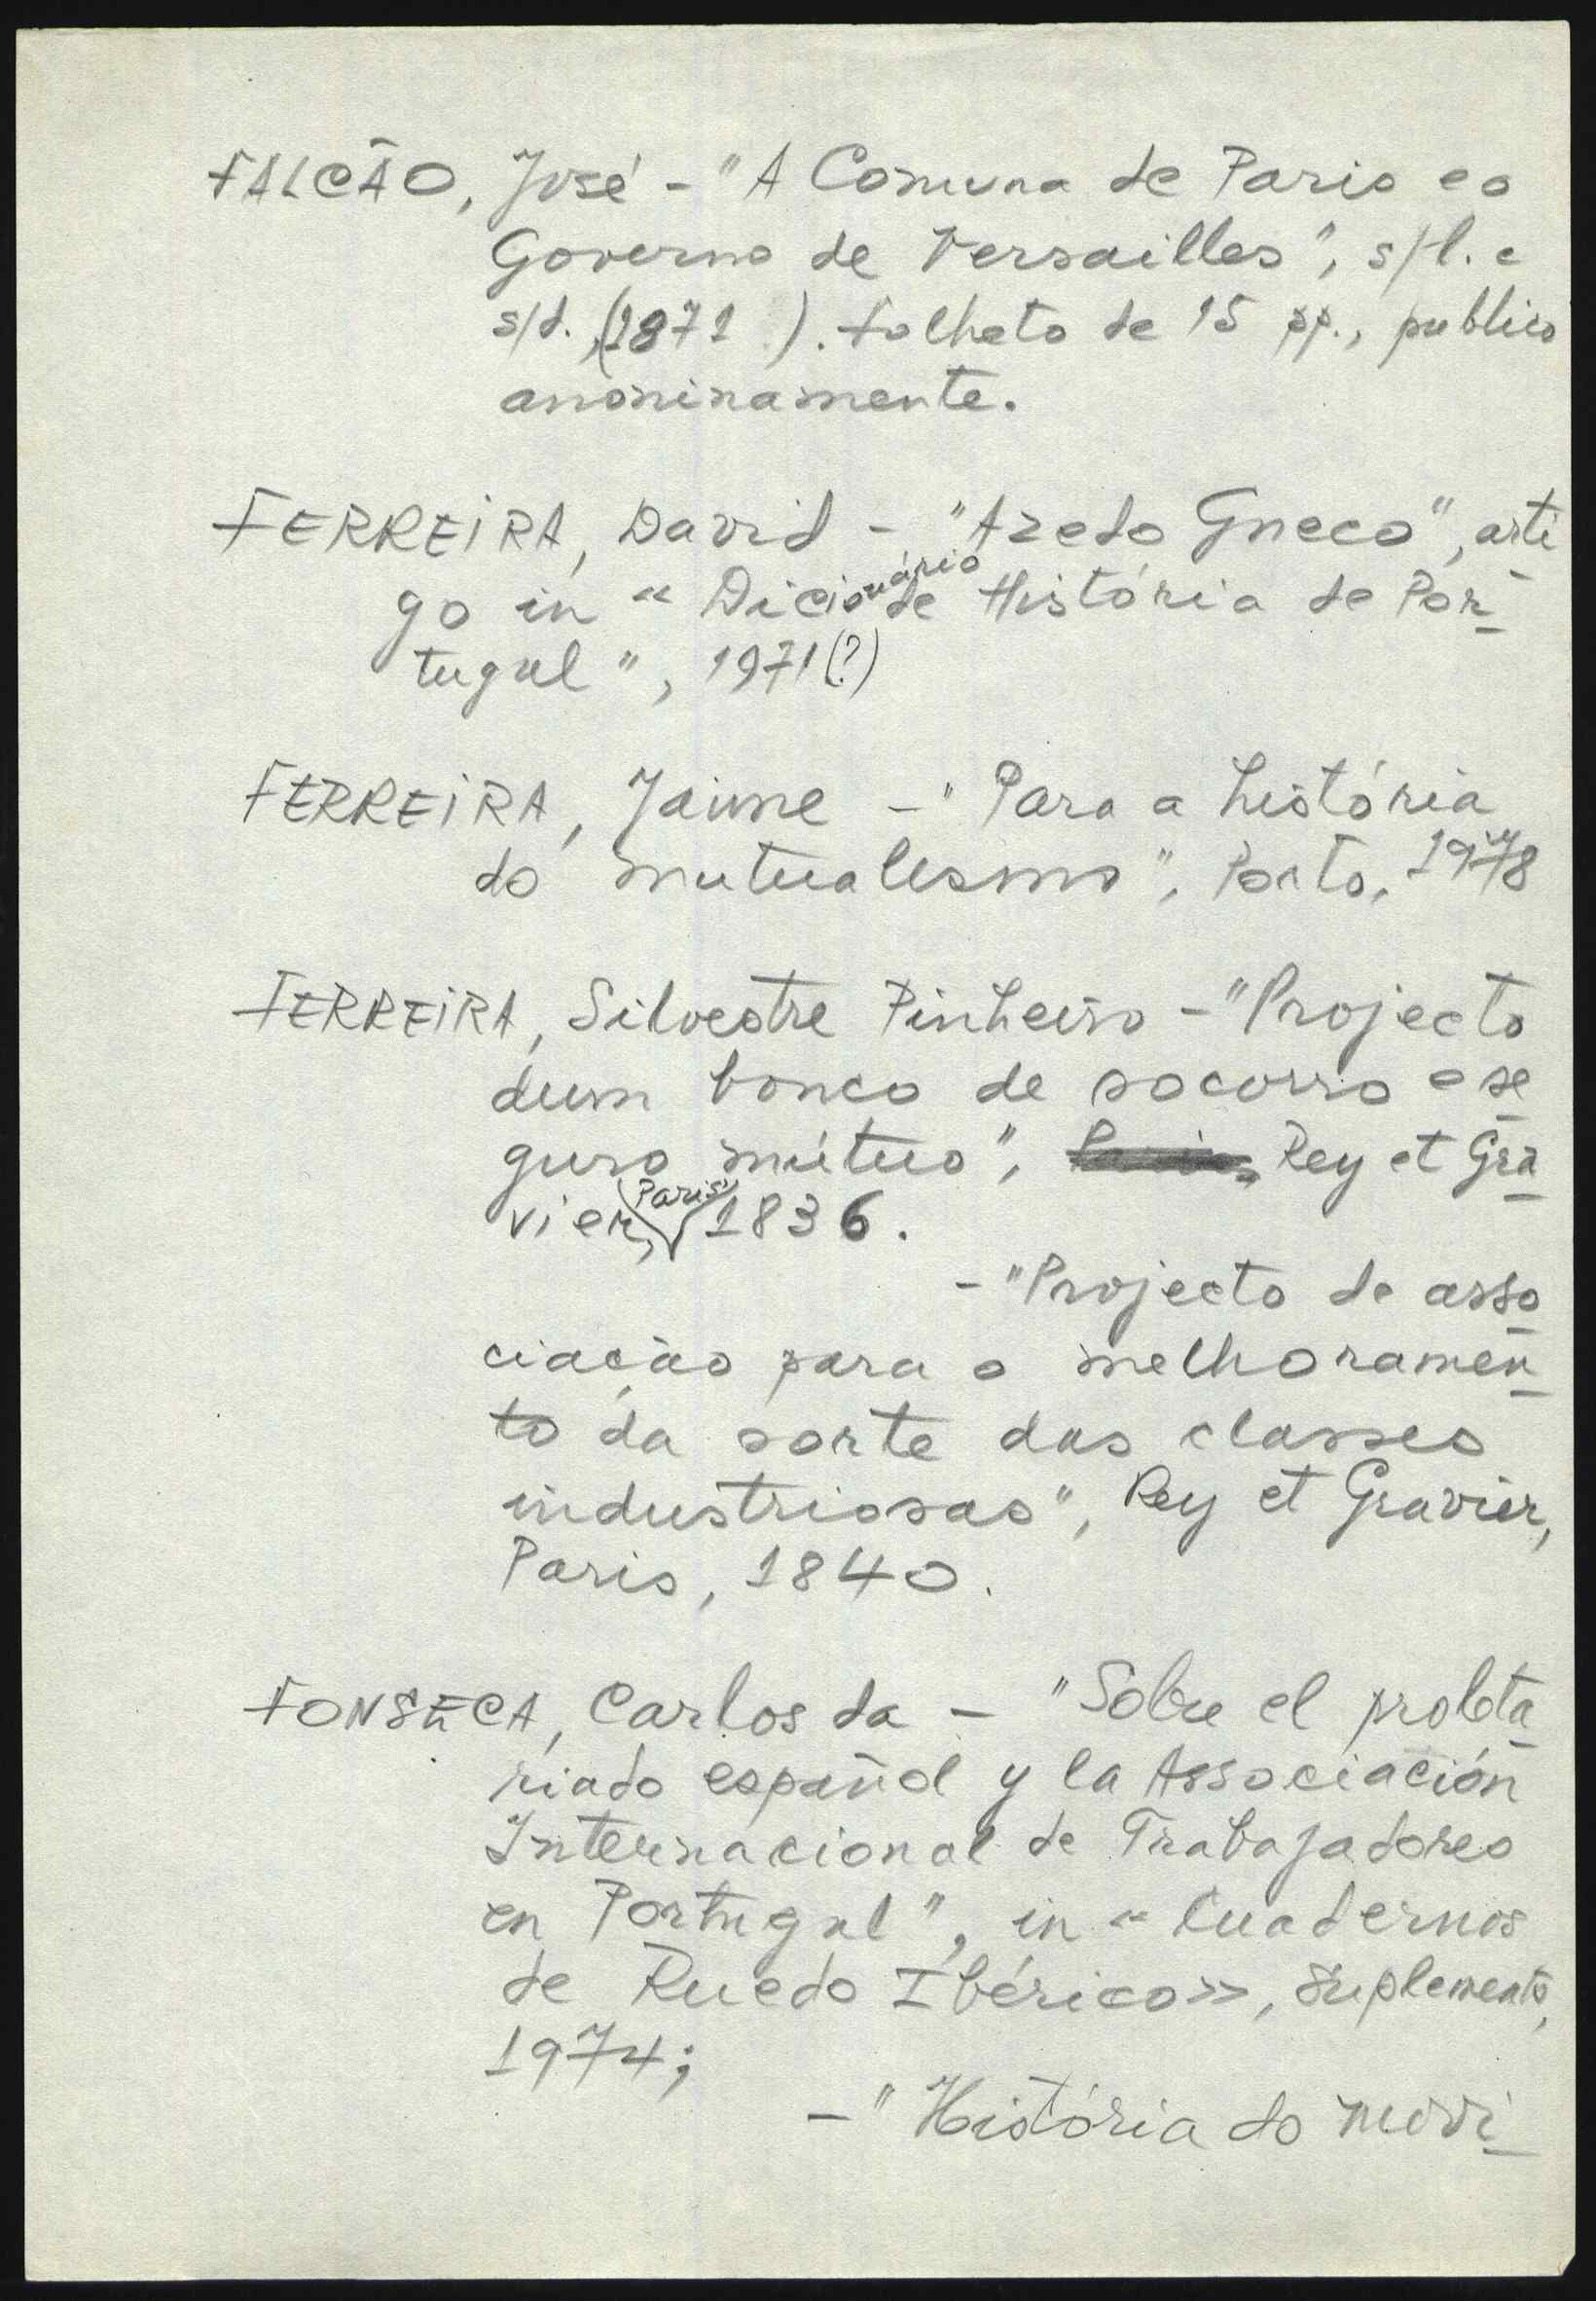 FALCÃO, José - "A Comuna de Paris e o
Governo de Versailles", s/l. e
s/d., (1871 ). Folheto de 15 pp., publico
anóninamente.
FERREIRA, David - "Azedo Gneco", arti
go in "Dicionário de História de Por-
tugal", 1971(?)
FERREIRA, Jaime - "Para a história
do mutualismo", Porto, 1978
FERREIRA, Silvestre Pinheiro - "Projecto
dum banco de socorro e se-
guro mútuo", Rey et Gra-
vier, Paris, 1836.
- "Projecto de asso-
ciação para o melhoramen-
to da sorte das classes
industriosas", Rey et Gravier,
Paris, 1840.
FONSECA, Carlos da - "Sobre el proleta-
riado español y la Associación
Internacional de Trabajadores
en Portugal", in "Cuadernos
de Ruedo Ibérico», suplemento,
1974;
- "História do movi-